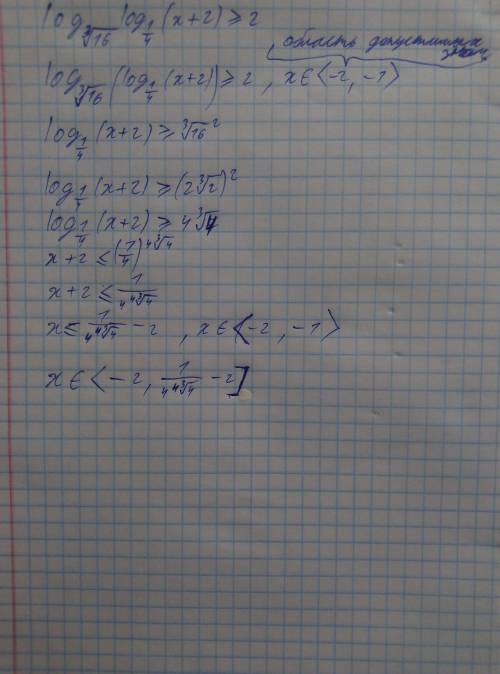 log_∛16 log_1/4 (x+2) ≥ 2
, область допустимых
log_∛16 (log_1/4 (x+2)) ≥ 2 , x∈⟨-2, -1⟩
log_1/4 (x+2) ≥ ∛16²
log_1/4 (x+2) ≥ (2∛2)²
log_1/4 (x+2) ≥ 4∛4
x+2 ≤ (1/4)^4∛4
x+2 ≤ 1/4^4∛4
x ≤ 1/4^4∛4 - 2 , x∈⟨-2, -1⟩
x∈⟨-2, 1/4^4∛4 - 2]